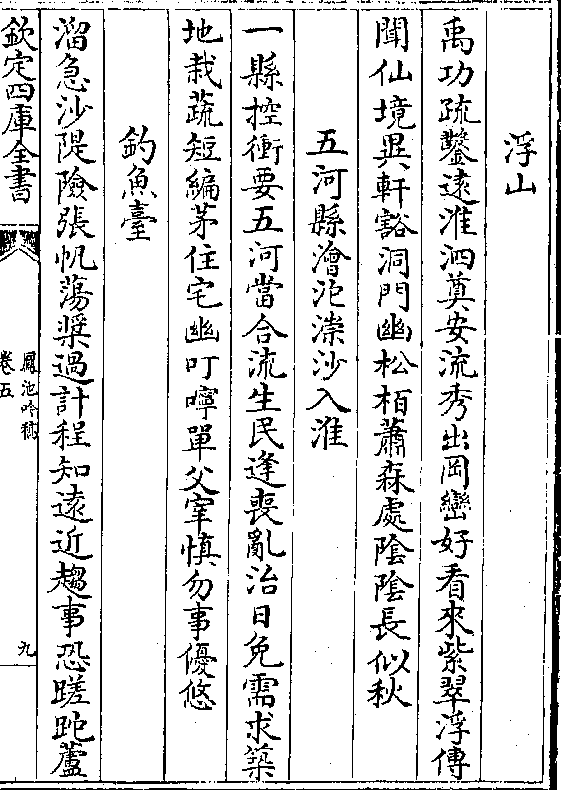 浮山
禹功疏鑿遠淮泗奠安流秀出岡巒好看來紫翠浮傳
聞仙境異軒豁洞門幽松栢蕭森處陰陰長似秋
五河縣澮沱漴沙入淮
一縣控衝要五河當合流生民逢喪亂治日免需求築
地栽蔬短編茅住宅幽叮嚀單父宰慎勿事優悠
釣魚臺
溜急沙隄險張帆蕩槳過計程知遠近趨事恐蹉跎蘆
欽定四庫全書
鳳池吟稿
卷五
九